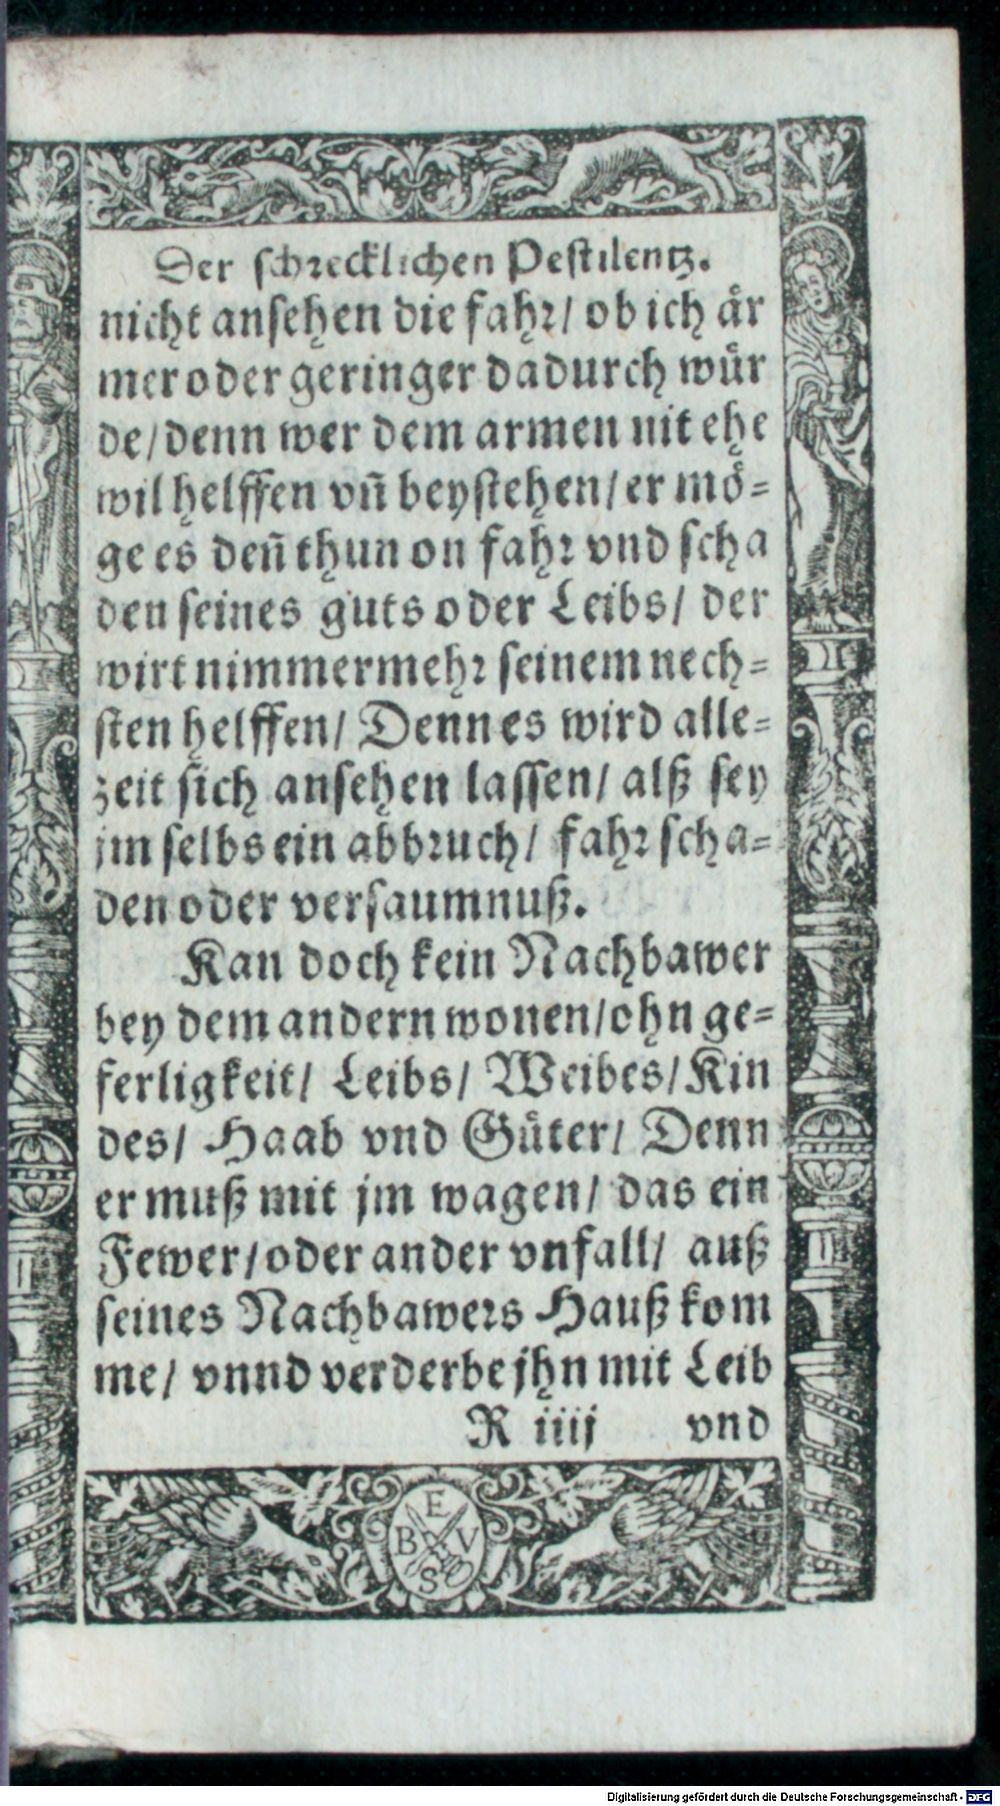 Der schrecklichen Pestilentz.
nicht ansehen die fahr/ ob ich aͤr
mer oder geringer dadurch wuͤr
de/ denn wer dem armen nit ehe
wil helffen vñ beystehen/ er moͤ=
ge es deñ thun on fahr vnd scha
den seines guts oder Leibs/ der
wirt nimmermehr seinem nech=
sten helffen/ Denn es wird alle=
zeit sich ansehen lassen/ alß sey
jm selbs ein abbruch/ fahr scha=
den oder versaumnuß.
Kan doch kein Nachbawer
bey dem andern wonen/ ohn ge=
ferligkeit/ Leibs/ Weibes/ Kin
des/ Haab vnd Guͤter/ Denn
er muß mit jm wagen/ das ein
Fewer/ oder ander vnfall/ auß
seines Nachbawers Hauß kom
me/ vnnd verderbe jhn mit Leib
R iiij vnd
E
B V
S
Digitalisierung gefördert durch die Deutsche Forschungsgemeinschaft - DFG